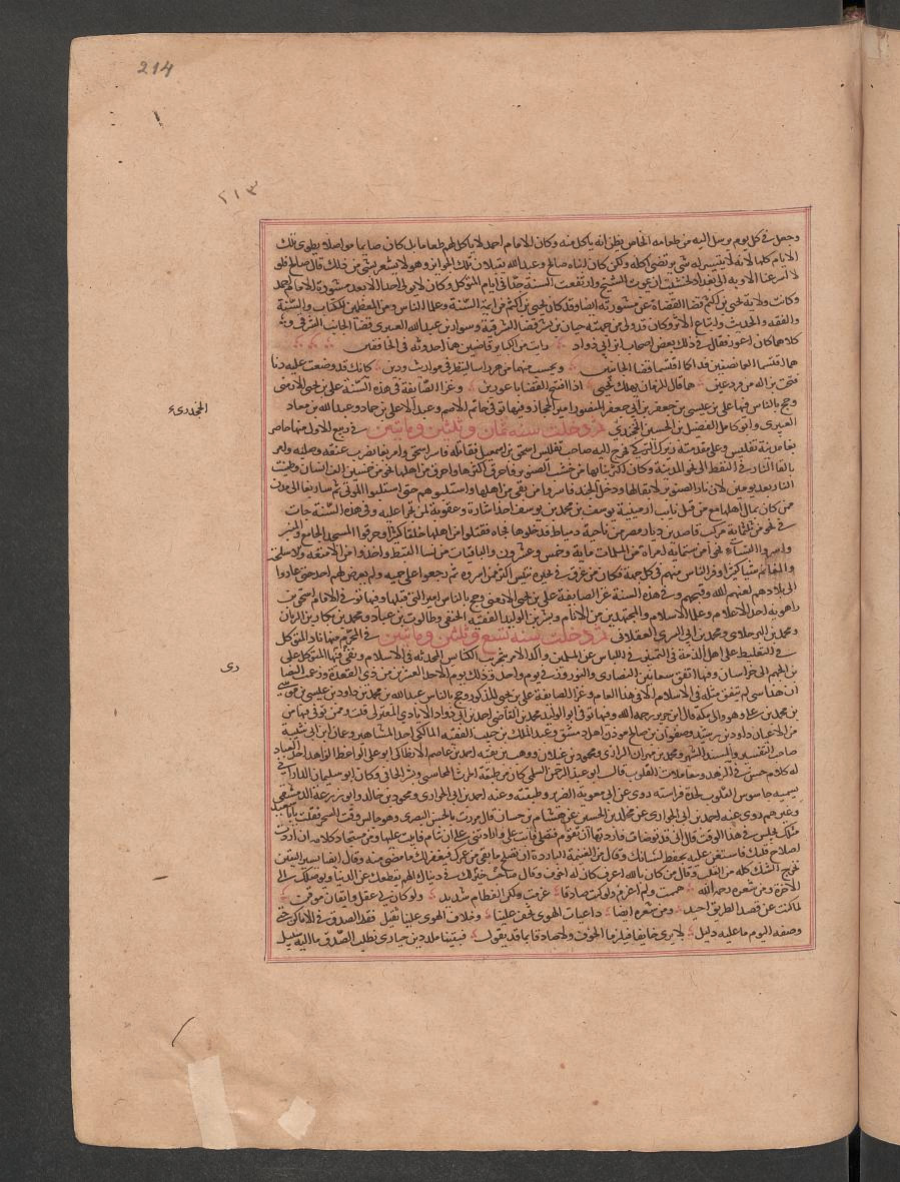 214
٢١٣
وجعل في كل يوم يرسل اليه من طعامه الخاص يظن انه ياكل منه وكان الامام احمد لا ياكل لهم طعاما بل كان صايما مواصلا يطوي تلك
الايام كلها لانه لا يتيسر له شي يرتضي اكله ولكن كان ابناه صالح وعبد الله يقبلان تلك الجوايز وهو لا يشعر بشي من ذلك
وارتفعت السنة جدا في ايام المتوكل وكان لا يولي احدا الا بعد مشورة الامام احمد
وكانت ولاية يحيى بن اكثم قضا القضاة عن مشورته ايضا وقد كان يحيى بن اكثم من ايمة السنة وعلما الناس ومن المعظمين للكتاب والسنة
والفقه والحديث واتباع الاثر وكان قد ولى من جهته حيان بن بشر قضا الشرقية وسوار بن عبد الله العنبري قضا الجانب الغربي و
كلاهما كان اعور فقال في ذلك بعض اصحاب ابن ابي دواد رايت من الكباير قاضيين هما احدوثة في الخافقين
هما اقتسما العما نصفين قدا كما اقتسما قضا الجانبين وتحسب منهما من هز راسا لينظر في مواريث ودين كانك قد وضعت عليه دنا
فتحت بزاله من فرد عين هما قال الزمان بهلك يحيى اذا افتتح القضا باعورين وغزا الصايفة في هذه السنة علي بن يحيى الارمني
وحج بالناس فيها علي بن عيسى بن جعفر بن ابي جعفر المنصور امير الحجاز وفيها توفي حاتم الاصم وعبد الاعلى بن حماد وعبيد الله بن معاد
العنبري وابو كامل الفضيل بن الحسين الجحدري ثم دخلت سنة ثمان وثلثين ومايتين في ربيع الاول منها حاصر
بغا مدينة تفليس وعلى مقدمته زيرك التركي فخرج اليه صاحب تفليس اسحق بن اسمعيل فقاتله فاسر اسحق وامر بغا بضرب عنقه وصلبه وامر
بالقا النار في النفط الى نحو المدينة وكان اكثر بنايها من خشب الصنوبر فاحرق اكثرها واحرق من اهلها نحو من خمسين الف انسان وطفيت
النار بعد يومين لان نار الصنوبر لا بقا لها ودخل الجند فاسروا من بقي من اهلها واستلبوهم حتى استلبوا الموتى ثم سار بغا الى مدن
وفي هذه السنة جات
في نحو من ثلثماية مركب قاصدين ديار مصر من ناحية دمياط فدخلوها فجاة فقتلوا من اهلها خلقا كثيرا وحرقوا المسجد الجامع والمنبر
واسروا من النسا نحوا من ستماية امراة من المسلمات ماية وخمس وعشرون والباقيات من نسا القبط واخذوا من الامتعة والاسلحة
والمغانم شيا كثيرا وفر الناس منهم في كل جهة فكان من غرق في بحيرة تنيس اكثر ممن اسروه ثم رجعوا على حمية ولم يعرض لهم احد حتى عادوا
الى بلادهم لعنهم الله وقبحهم وفي هذه السنة غزا الصايفة علي بن يحيى الارمني وحج بالناس امير التي قبلها وفيها توفي الامام اسحق بن
راهويه احد الاعلام وعلما الاسلام والمجتهدين من الانام وبشر بن الوليد الفقيه الحنفي وطالوت بن عباد ومحمد بن بكار بن الريان
ومحمد بن البرجلاني ومحمد بن ابي السري العسقلاني ثم دخلت سنة تسع وثلثين ومايتين في المحرم منها زاد المتوكل
في التغليظ على اهل الذمة في التميز في اللباس عن المسلمين واكد الامر بتخريب الكنايس المحدثة في الاسلام ونفى فيها المتوكل علي
بن الجهم الى خراسان وفيها اتفق سعانين النصارى والنوروز في يوم واحد وذلك يوم الاحد لعشرين من ذي القعدة وزعمت النصارى
ان هذا شي لم يتفق مثله في الاسلام الا في هذا العام وغزا الصايفة علي بن يحيى المذكور وحج بالناس عبد الله بن محمد بن داود بن عيسى بن موسى
بن محمد بن علي وهو والي مكة قال ابن جرير رحمه الله وفيها توفي ابو الوليد محمد بن القاضي احمد بن ابي دواد الايادي المعتزلي قلت وممن توفي فيها من
الاعيان داود بن رشيد وصفوان بن صالح موذن اهل دمشق وعبد الملك بن حبيب الفقيه المالكي احد المشاهير وعثمان بن ابي شيبة
صاحب التفسير والمسند المشهور ومحمد بن مهران الرازي ومحمود بن غيلان ووهب بن بقية احمد بن عاصم الانطاكي ابو علي الواعظ الزاهد احد العباد
له كلام حسن في الزهد ومعاملات القلوب قال ابو عبد الرحمن السلمي كان من طبقة الحارث المحاسبي وبشر الحافي وكان ابو سليمان الداراني
يسميه جاسوس القلوب لحدة فراسته روى عن ابي معوية الضرير وطبقته وعنه احمد بن ابي الحواري ومحمود بن خالد وابو زرعة الدمشقي
وغيرهم روى عنه احمد بن ابي الحواري عن مخلد بن الحسين عن هشام بن حسان قال مررت بالحسن البصري وهو جالس وقت السحر فقلت يا ابا سعيد
مثلك يجلس في هذا الوقت قال اني قد توضات فاردتها ان تقوم فتصلي فابت علي وارادتني على ان تنام فابيت عليها ومن مستجاد كلامه ان اردت
اصلاح قلبك فاستعن عليه بحفظ لسانك وقال من الغنيمة الباردة ان تصلح ما بقي من عمرك فيغفر لك ما مضى منه وقال ايضا يسير اليقين
يخرج الشك كله من القلب وقال من كان بالله اعرف كان له اخوف وقال
الاخرة ومن شعره رحمه الله هممت ولم اعزم ولو كنت صادقا عزمت ولكن الفطام شديد ولو كان لي عقل وايقان موقن
لما كنت عن قصد الطريق احيد ومن شعره ايضا داعيات الهوى تخف علينا وخلاف الهوى علينا ثقيل فقد الصدق في الاماكن حتى
وصفه اليوم ما عليه دليل لا يرى خايفا فيلزما الخوف ولا صادقا بما قد يقول فبقينا مذبذبين حيارى نطلب الصدق ما اليه سبيل
الجحدري
دى